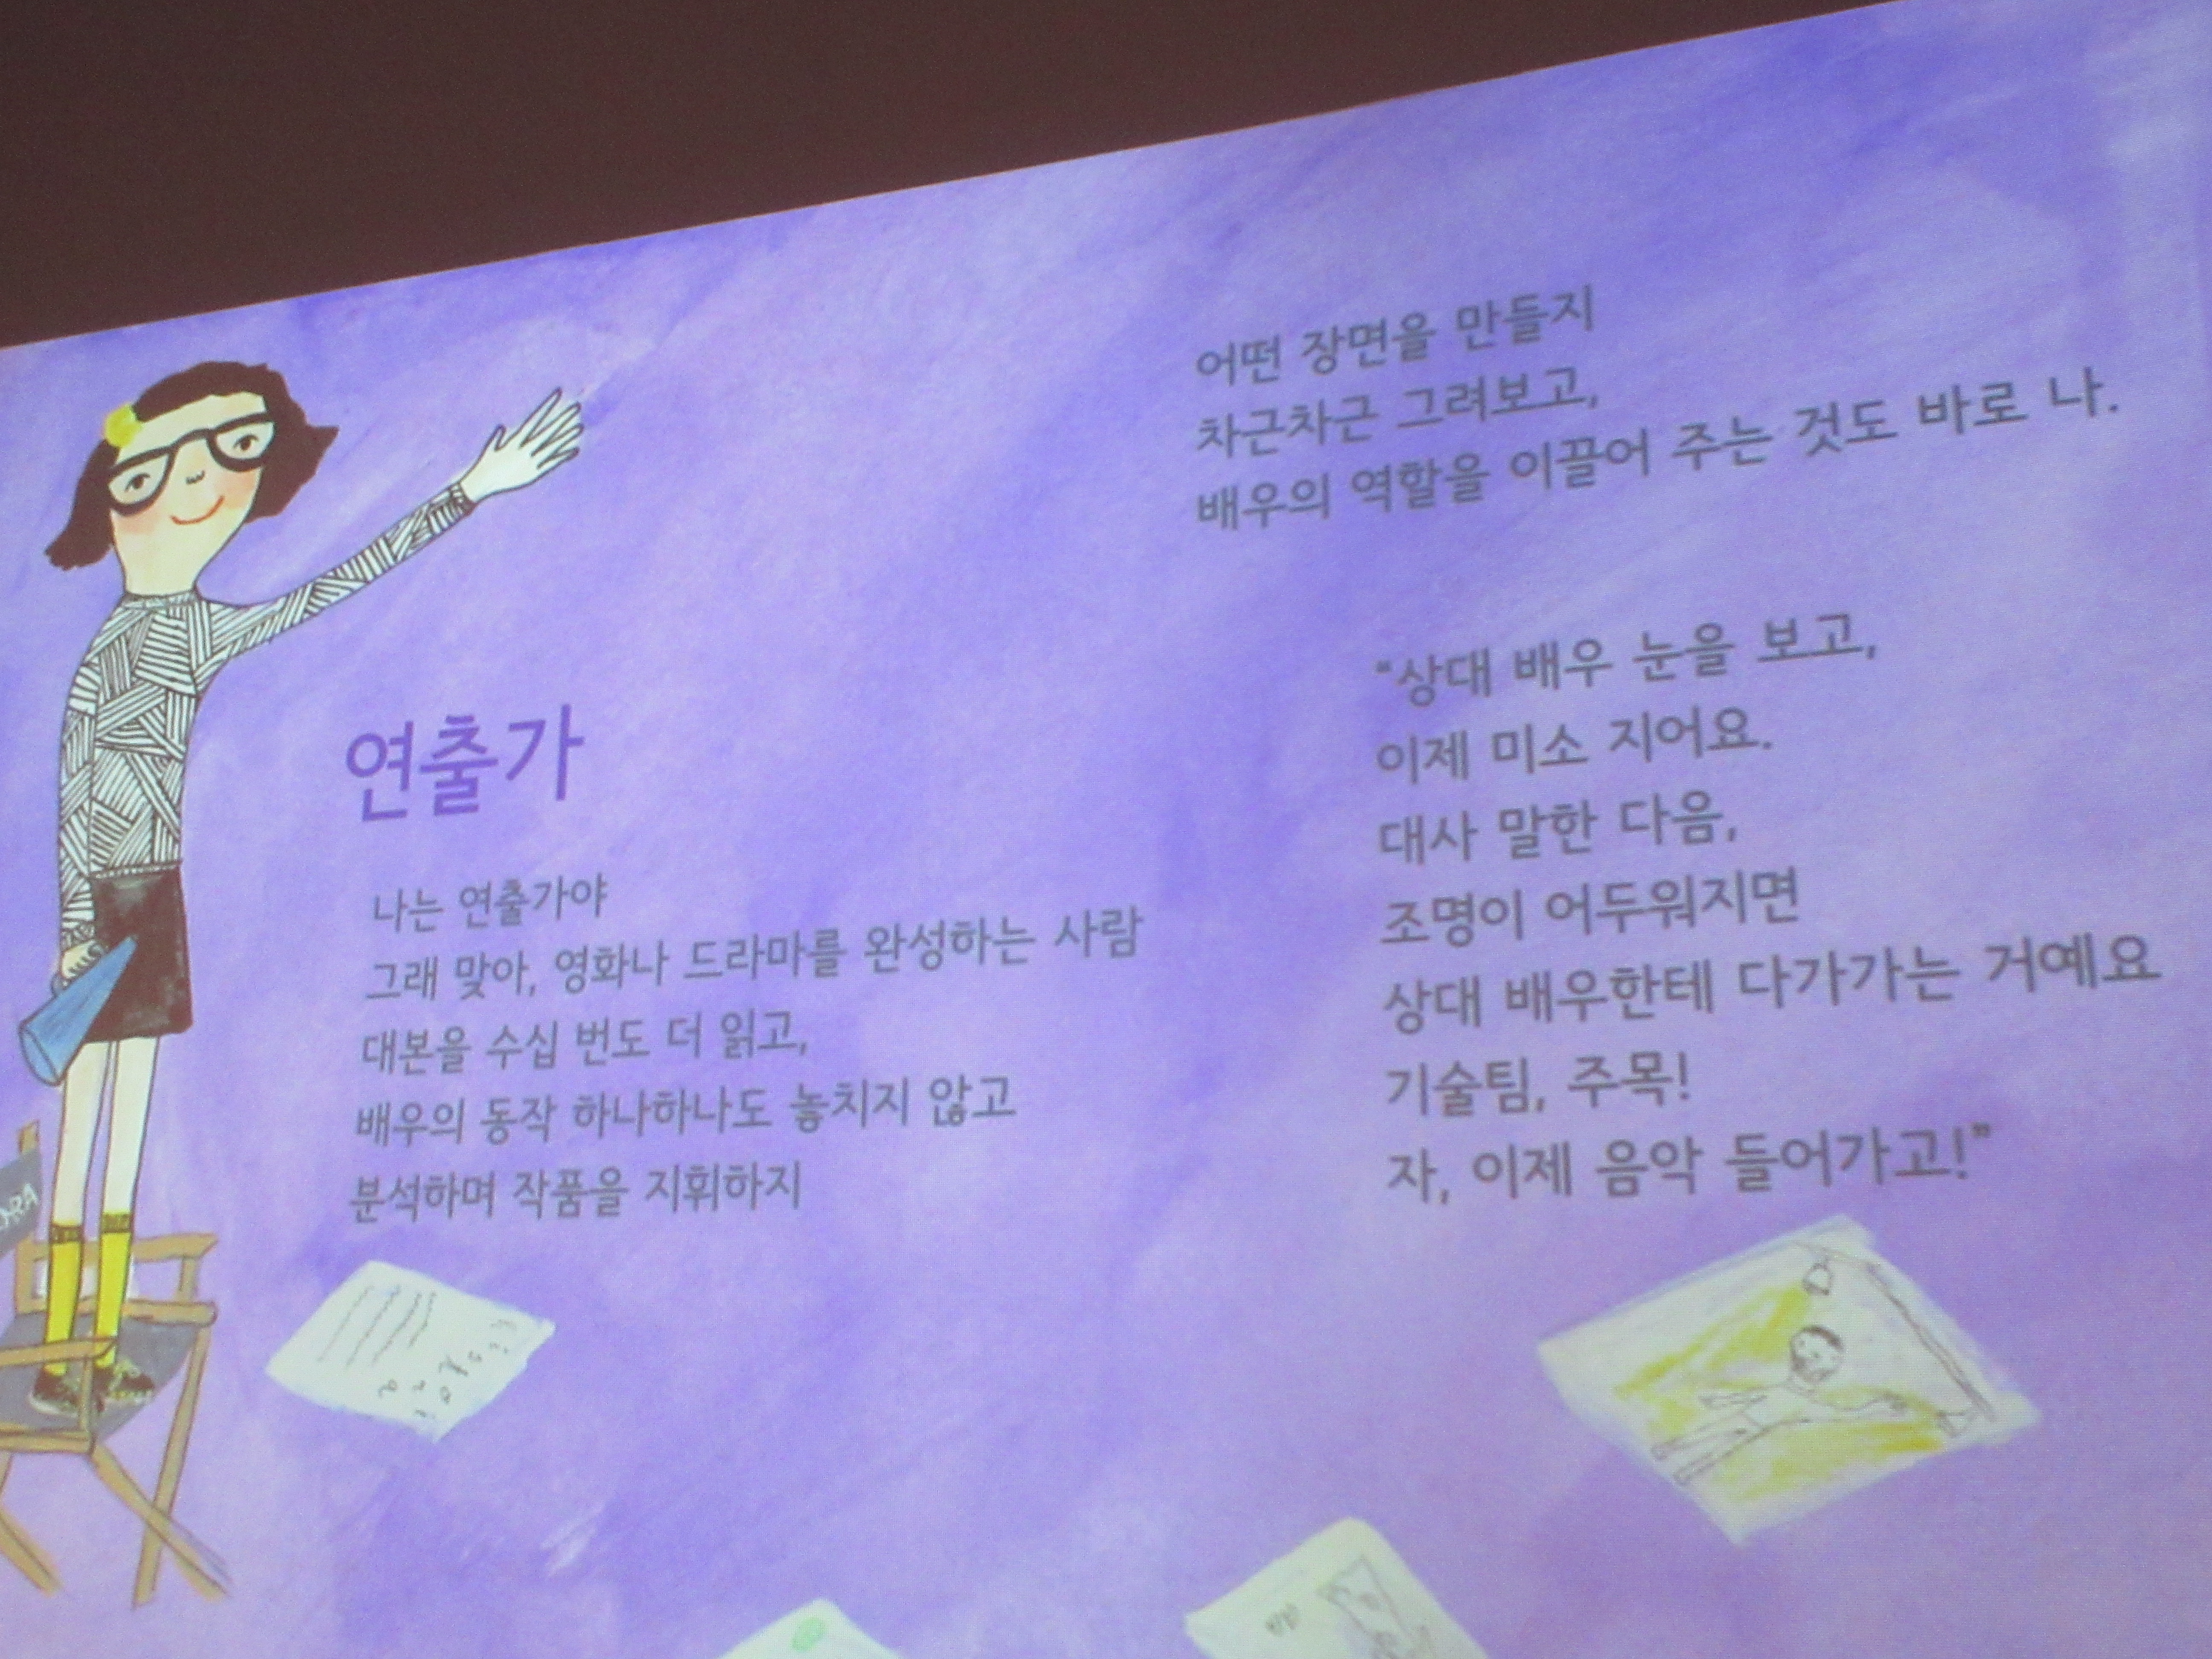 연출가
나는 연출가야
그래 맞아, 영화나 드라마를 완성하는 사람
대본을 수십 번도 더 읽고,
배우의 동작 하나하나도 놓치지 않고
분석하며 작품을 지휘하지
어떤 장면을 만들지
차근차근 그려보고,
배우의 역할을 이끌어 주는 것도 바로 나.
“상대 배우 눈을 보고,
이제 미소 지어요.
대사 말한 다음,
조명이 어두워지면
상대 배우한테 다가가는 거예요
기술팀, 주목!
자, 이제 음악 들어가고!”